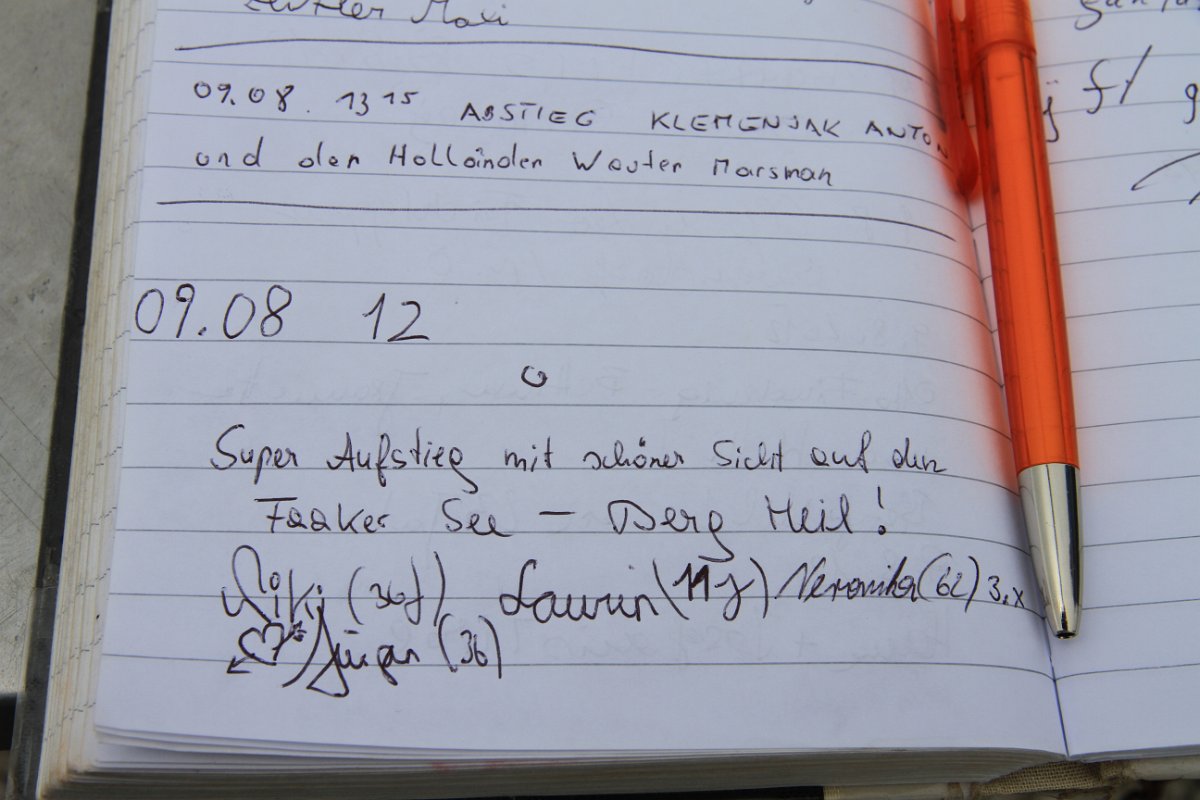 Maxi
09.08. 13 15 ABSTIEG KLEMENJAK ANTON
und der Holländer Wouter Marsman
09.08 12
Super Aufstieg mit schöner Sicht auf den
Faaker See – Berg Heil!
(36j) Laurin (11j) Veronika (62) 3.x
Jürgen (36)